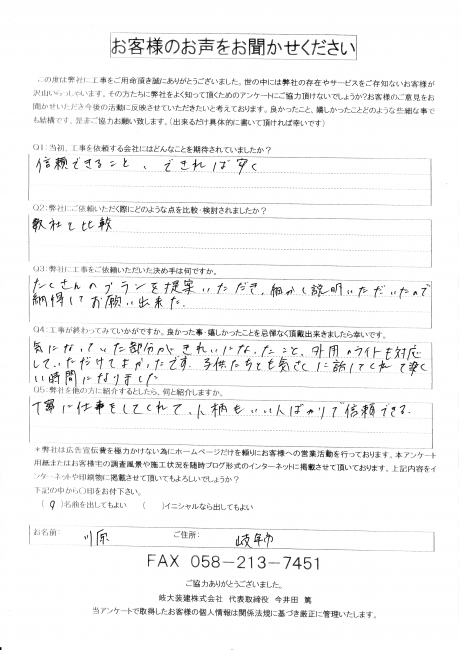 お客様のお声をお聞かせください
この度は弊社に工事をご用命頂き誠にありがとうございました。世の中には弊社の存在やサービスをご存知ないお客様が
沢山いらっしゃいます。その方たちに弊社をよく知って頂くためのアンケートにご協力頂けないでしょうか？お客様のご意見をお
聞かせいただき今後の活動に反映させていただきたいと考えております。良かったこと、嬉しかったことどのような些細な事で
も結構です、是非ご協力お願い致します。（出来るだけ具体的に書いて頂ければ幸いです）
Q1：当初、工事を依頼する会社にはどんなことを期待されていましたか？
信頼できること、できれば安く
Q2：弊社にご依頼いただく際にどのような点を比較・検討されましたか？
数社と比較
Q3：弊社に工事をご依頼いただいた決め手は何ですか。
たくさんのプランを提案いただき、細かく説明いただいたので
納得してお願い出来た.
Q4：工事が終わってみていかがですか。良かった事・嬉しかったことを忌憚なく頂戴出来きましたら幸いです。
気になっていた部分がきれいになったこと、外用のライトも対応
していただけてよかったです. 子供たちとも気さくに話してくれて楽し
い時間になりました
Q5：弊社を他の方に紹介するとしたら、何と紹介しますか。
丁寧に仕事をしてくれて、人柄もいい人ばかりで信頼できる.
＊弊社は広告宣伝費を極力かけない為にホームページだけを頼りにお客様への営業活動を行っております。本アンケート
用紙またはお客様宅の調査風景や施工状況を随時ブログ形式のインターネットに掲載させて頂いております。上記内容をイ
ンターネットや印刷物に掲載させて頂いてもよろしいでしょうか？
下記の中から〇印をお付下さい。
（ ）名前を出してもよい （ ）イニシャルなら出してもよい
お名前： 川原 ご住所： 岐阜市
FAX 058-213-7451
ご協力ありがとうございました。
岐大装建株式会社 代表取締役 今井田 篤
当アンケートで取得したお客様の個人情報は関係法規に基づき厳正に管理いたします。